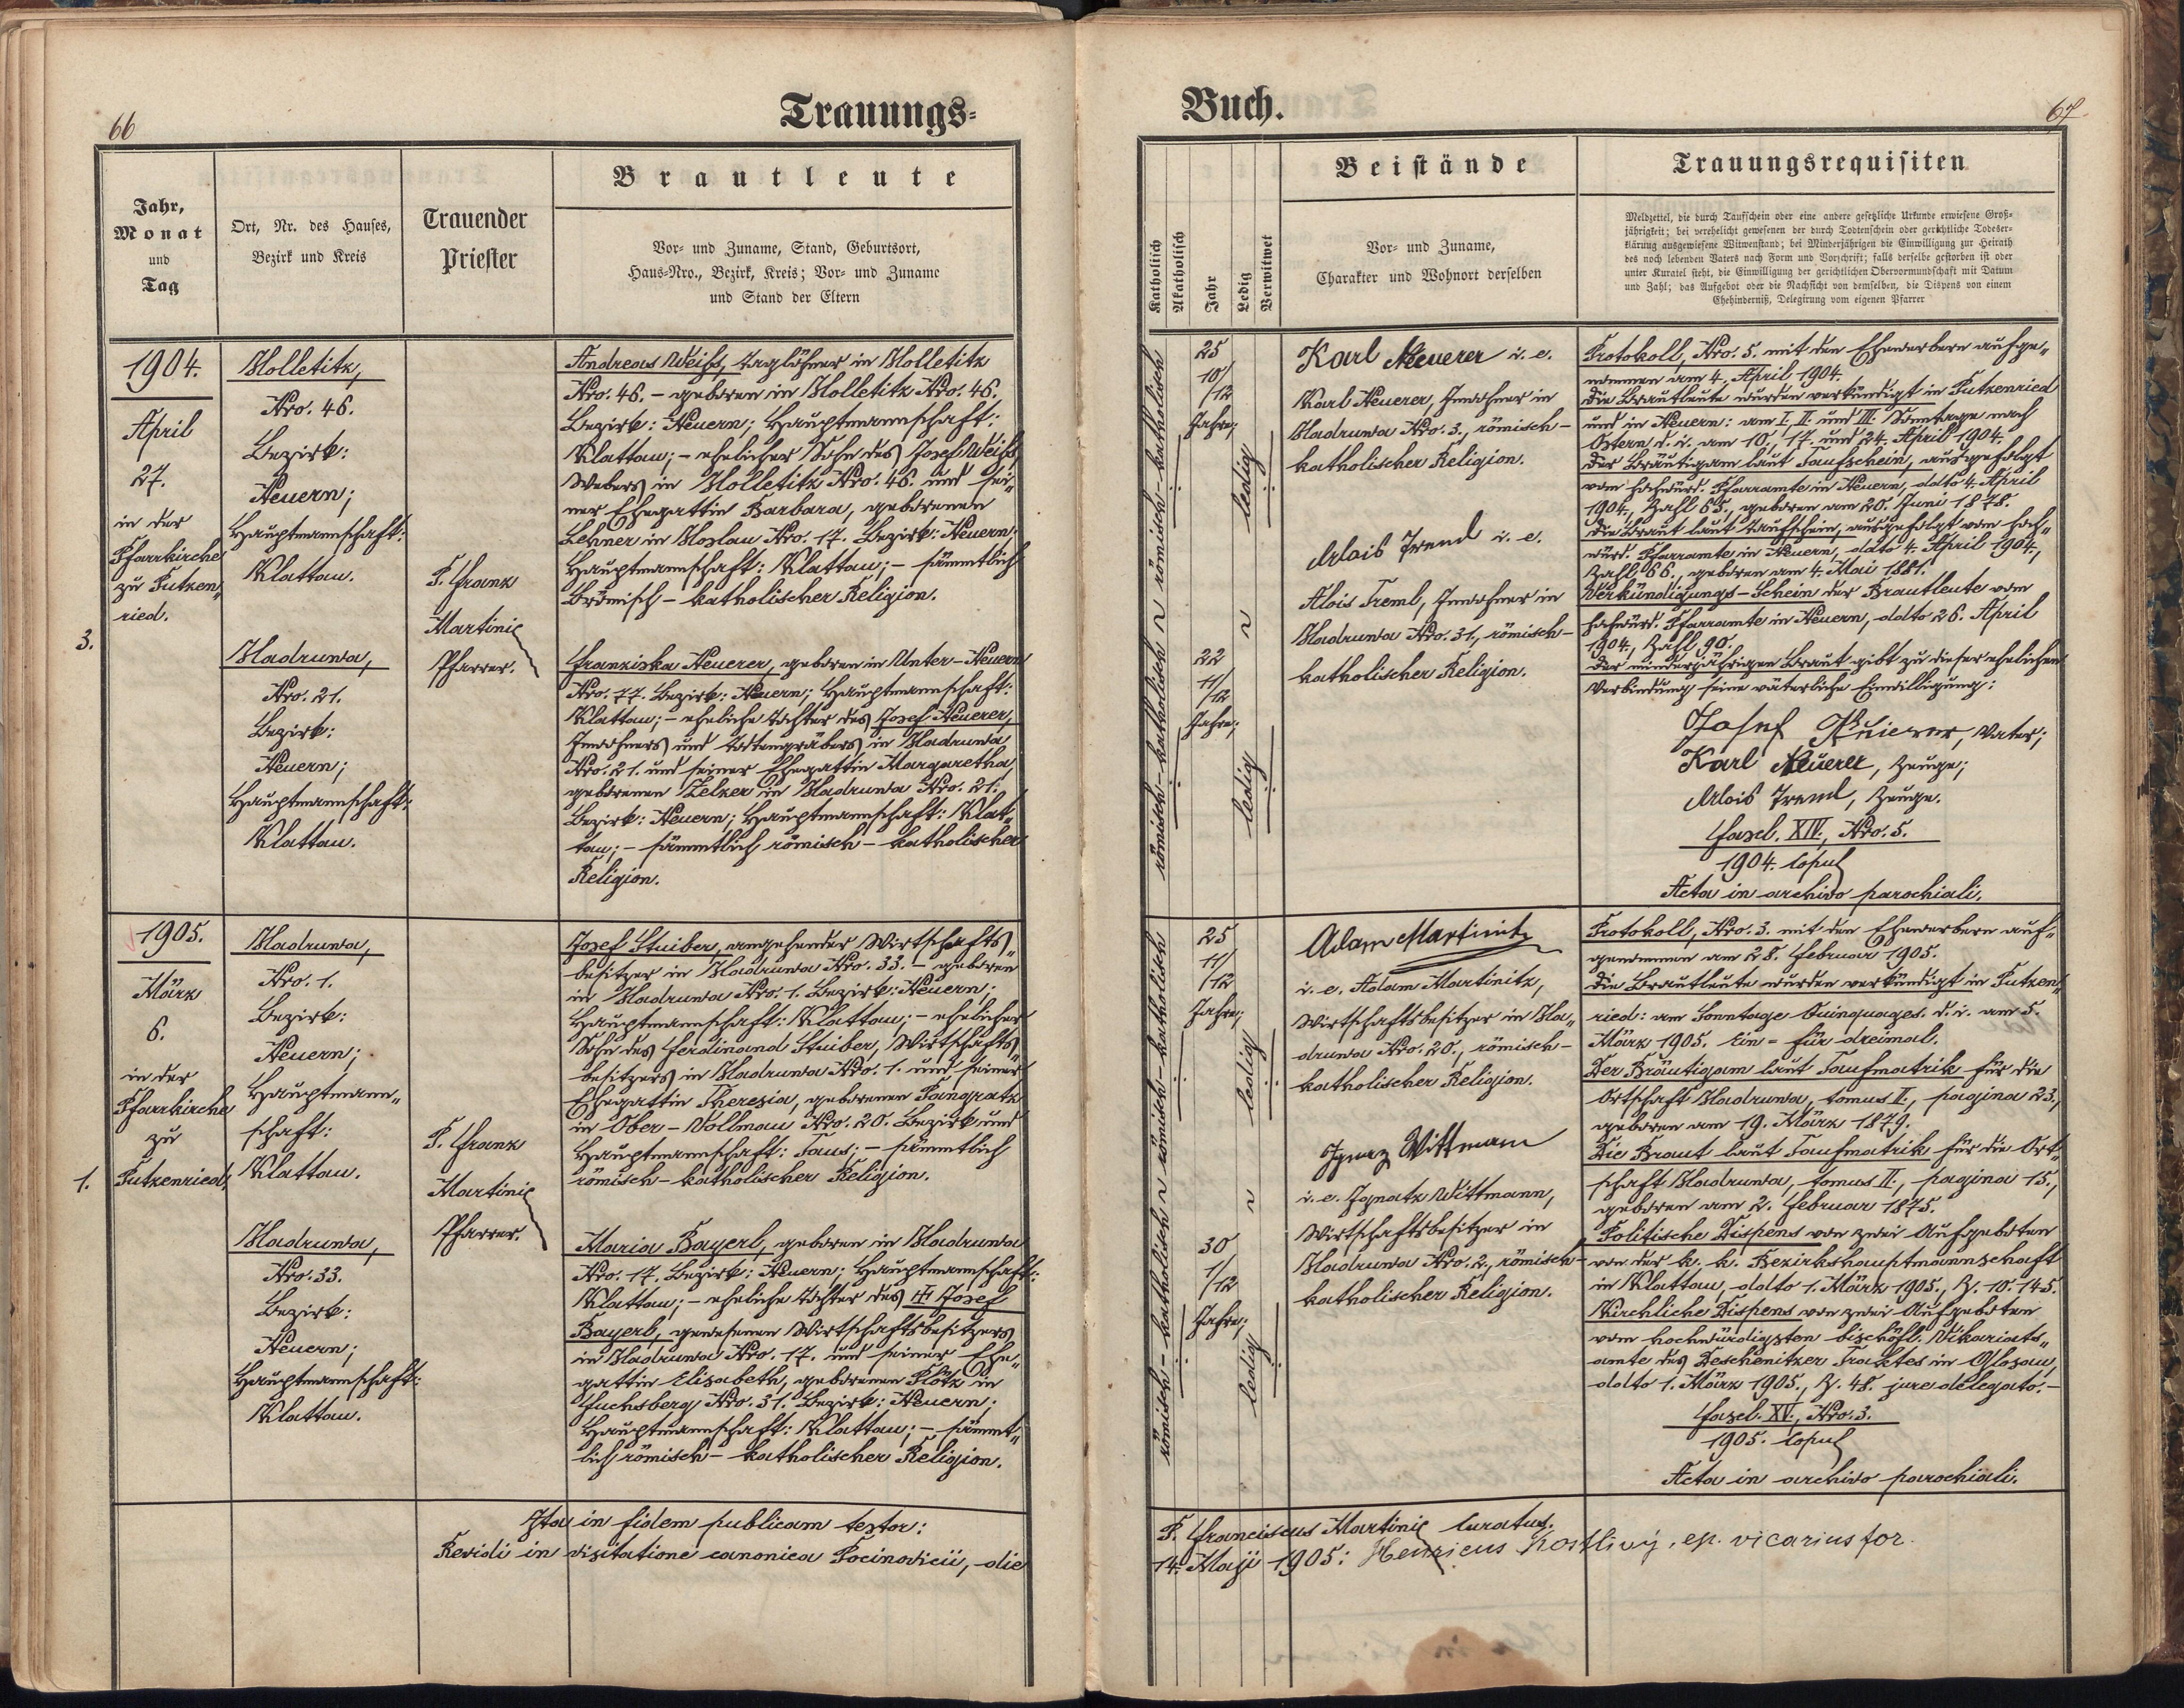 66
Trauungs-
Jahr,
Monat
und
Tag
Ort, Nr. des Hauses,
Bezirk und Kreis
Trauender
Priester
Brautleute
Vor- und Zuname, Stand, Geburtsort,
Haus-Nro., Bezirk, Kreis; Vor- und Zuname
und Stand der Eltern
3.
1904.
April
27.
in der
Pfarrkirche
zu Putzen„
ried.
Holletitz,
Nro. 46.
Bezirk:
Neuern;
Hauptmannschaft:
Klattau.
Hadruwa,
Nro. 21.
Bezirk:
Neuern;
Hauptmannschaft:
Klattau.
P. Franz
Martinic
Pfarrer.
Andreas Weiss, Taglöhner in Holletitz
Nro. 46. – geboren in Holletitz Nro. 46.
Bezirk: Neuern; Hauptmannschaft:
Klattau; – ehelicher Sohn des Josef Weiss
Webers in Holletitz Nro. 46. und sei„
ner Ehegattin Barbara, geborenen
Lehner in Hoslau Nro. 17. Bezirk: Neuern;
Hauptmannschaft: Klattau; – sämmtlich
römisch – katholischer Religion.
Franziska Neuerer, geboren in Unter – Neuern
Nro. 77. Bezirk: Neuern; Hauptmannschaft:
Klattau; – eheliche Tochter des Josef Neuerer,
Inwohners und Todtengräbers in Hadruwa
Nro. 21. und seiner Ehegattin Margaretha,
geborenen Zelzer in Hadruwa Nro. 21.
Bezirk: Neuern; Hauptmannschaft: Klat„
tau; – sämmtlich römisch – katholischer
Religion.
1.
1905.
März
6.
in der
Pfarrkirche
zu
Putzenried.
Hadruwa,
Nro. 1.
Bezirk:
Neuern;
Hauptmann„
schaft:
Klattau.
Hadruwa,
Nro. 33.
Bezirk:
Neuern;
Hauptmannschaft:
Klattau.
P. Franz
Martinic
Pfarrer.
Josef Stuiber, angehender Wirtschafts„
besitzer in Hadruwa Nro. 33. – geboren
in Hadruwa Nro. 1. Bezirk: Neuern;
Hauptmannschaft: Klattau; – ehelicher
Sohn des Ferdinand Stuiber, Wirtschafts„
besitzers in Hadruwa Nro. 1. und seiner
Ehegattin Theresia, geborenen Pangratz
in Ober – Vollmau Nro. 20. Bezirk und
Hauptmannschaft: Taus; – sämmtlich
römisch – katholischer Religion.
Maria Bayerl, geboren in Hadruwa
Nro. 17. Bezirk: Neuern; Hauptmannschaft:
Klattau; – eheliche Tochter des ✝ Josef
Bayerl, gewesenen Wirtschaftsbesitzers
in Hadruwa Nro. 17. und seiner Ehe„
gattin Elisabeth, geborenen Plötz in
Fuchsberg Nro. 31. Bezirk: Neuern;
Hauptmannschaft: Klattau; – sämmt„
lich römisch – katholischer Religion.
Ita in fidem publicam testor:
Revidi in visitatione canonica Pocinovicii, die
Buch.
67
Katholisch
Akatholisch
Jahr
Ledig
Verwitwet
Beistände
Vor- und Zuname,
Charakter und Wohnort derselben
Trauungsrequisiten
Meldzettel, die durch Taufschein oder eine andere gesetzliche Urkunde erwiesene Groß-
jährigkeit; bei verehelicht gewesenen der durch Todtenschein oder gerichtliche Todeser-
klärung ausgewiesene Witwenstand; bei Minderjährigen die Einwilligung zur Heirath
des noch lebenden Vaters nach Form und Vorschrift; falls derselbe gestorben ist oder
unter Kuratel steht, die Einwilligung der gerichtlichen Obervormundschaft mit Datum
und Zahl; das Aufgebot oder die Nachsicht von demselben, die Dispens von einem
Ehehinderniß, Delegirung vom eigenen Pfarrer
römisch – katholisch
25
10/
/12
Jahre;
ledig
römisch – katholisch
22
11/
/12
Jahre;
ledig
Karl Neuerer i. e.
Karl Neuerer, Inwohner in
Hadruwa Nro. 3., römisch –
katholischer Religion.
Alois Treml i. e.
Alois Treml, Inwohner in
Hadruwa Nro. 31., römisch –
katholischer Religion.
Protokoll, Nro. 5. mit den Ehewerbern aufge„
nommen am 4. April 1904.
Die Brautleute wurden verkündigt in Putzenried
und in Neuern: am I. II. und III. Sonntage nach
Ostern d. i. am 10., 17. und 24. April 1904.
Der Bräutigam laut Taufschein, ausgefolgt
vom hochwürd. Pfarramte in Neuern, ddto 4. April
1904., Zahl 65., geboren am 20. Juni 1878.
Die Braut laut Taufschein, ausgefolgt vom hoch„
würd. Pfarramte in Neuern, ddto 4. April 1904.,
Zahl 66., geboren am 4. Mai 1881.
Verkündigungs – Schein der Brautleute vom
hochwürd. Pfarramte in Neuern, ddto 26. April
1904., Zahl 90.
Der minderjährigen Braut gibt zu dieser ehelichen
Verbindung seine väterliche Einwilligung:
Josef Neuerer, Vater;
Karl Neuerer, Zeuge;
Alois Treml, Zeuge.
Fascl. XIV., Nro. 5.
1904. Copul
Acta in archivo parochiali.
römisch – katholisch
25
11/
/12
Jahre;
ledig
römisch – katholisch
30
1/
/12
Jahre;
ledig
Adam Martinitz
i. e. Adam Martinitz,
Wirtschaftsbesitzer in Ha„
druwa Nro. 20., römisch –
katholischer Religion.
Ignaz Wittmann
i. e. Ignatz Wittmann,
Wirtschaftsbesitzer in
Hadruwa Nro. 2., römisch –
katholischer Religion.
Protokoll, Nro. 3. mit den Ehewerbern auf„
genommen am 28. Februar 1905.
Die Brautleute wurden verkündigt in Putzen„
ried: am Sonntage Quinquages. d. i. am 5.
März 1905. Ein = für dreimal.
Der Bräutigam laut Taufmatrik für die
Ortschaft Hadruwa, tomus II., pagina 23.,
geboren am 19. März 1879.
Die Braut laut Taufmatrik für die Ort„
schaft Hadruwa, tomus II., pagina 15.,
geboren am 2. Februar 1875.
Politische Dispens von zwei Aufgeboten
von der k. k. Bezirkshauptmannschaft
in Klattau, ddto 1. März 1905., Z. 10.145.
Kirchliche Dispens von zwei Aufgeboten
vom hochwürdigsten bischöfl. Vikariats„
amte des Deschenitzer Traktes in Glosau,
ddto 1. März 1905., Z. 48. jure delegato. –
Fascl. XV., Nro. 3.
1905. Copul
Acta in archivo parochiali.
P. Franciscus Martinic Curatus.
14. Maji 1905: Henricus Kostlivý, ep. vicarius for.